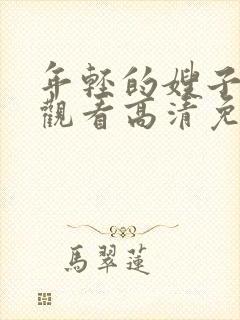 年輕的嫂子
觀看高清免
馬翠蓮